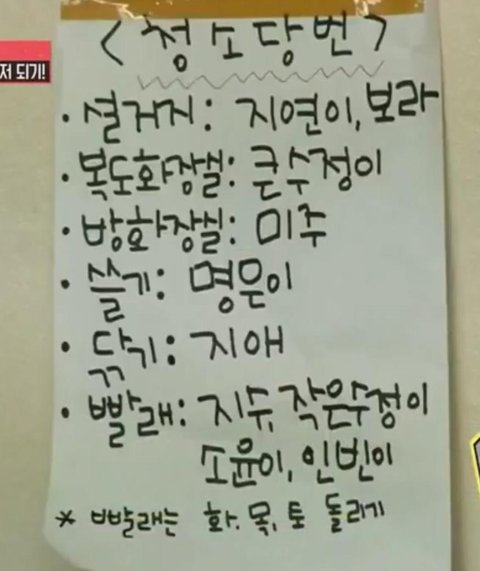 저 되기!
<청소당번>
· 설거지: 지연이, 보라
· 복도화장실: 큰수정이
· 방화장실: 미주
· 쓸기: 명은이
· 닦기: 지애
· 빨래: 지수, 작은수정이
소윤이, 인빈이
* 빨래는 화, 목, 토 돌리기